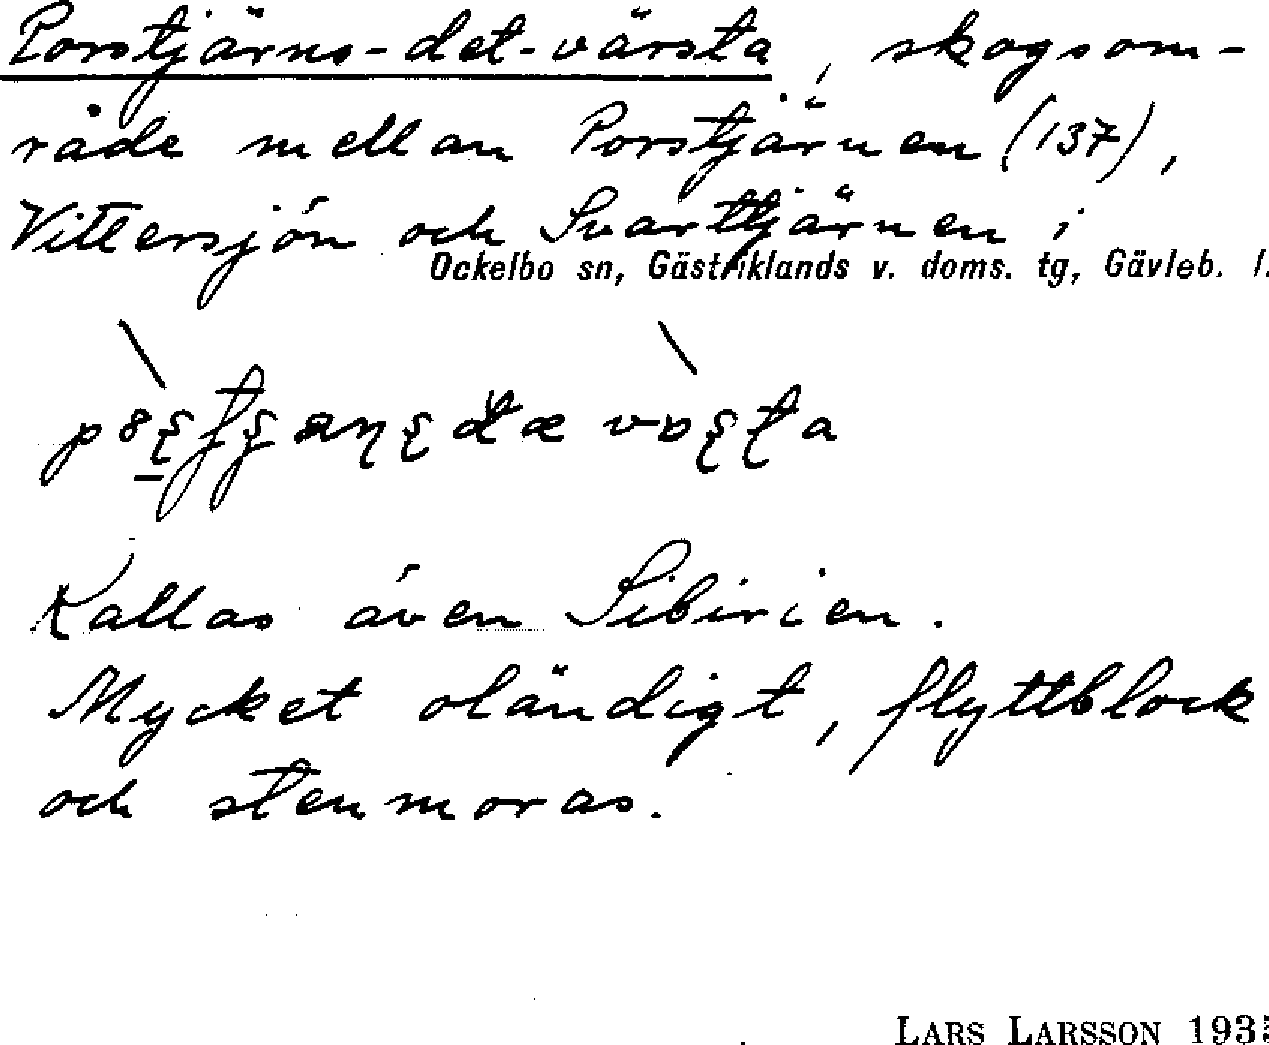 Porstjärns-det-värsta, skogsom-
råde mellan Porstjärnen (137),
Vittersjön och Svarttjärnen i
Ockelbo sn, Gästriklands v. doms. tg, Gävleb. l.
Kallas även Sibirien.
Mycket oländigt, flyttblock
och stenmoras.
LARS LARSSON